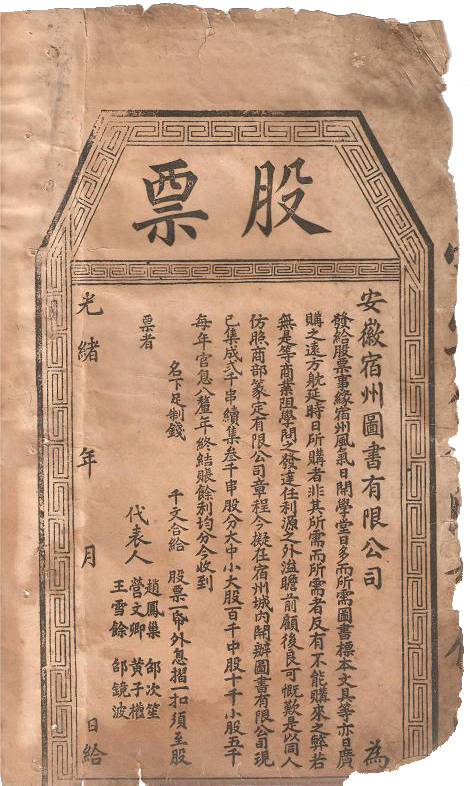 股票
安徽宿州圖書有限公司 為
發給股票事緣宿州風氣日開學堂日多而所需圖書標本文具等亦日廣
購之遠方躭延時日所購者非其所需而所需者反有不能購來之弊若
無是等商業阻學問之發達任利源之外溢瞻前顧後良可慨歎是以同人
仿照商部篆定有限公司章程今擬在宿州城內開辦圖書有限公司現
已集成弍千串續集叁千串股分大中小大股百千中股十千小股五千
每年官息八釐年終結賬餘利均分今收到
名下足制錢 千文合給 股票一帋外息摺一扣須至股
票者
代表人
趙鳳巢 邵次笙
營文卿 黃子權
王雪餘 邵鏡波
光緒 年 月 日給